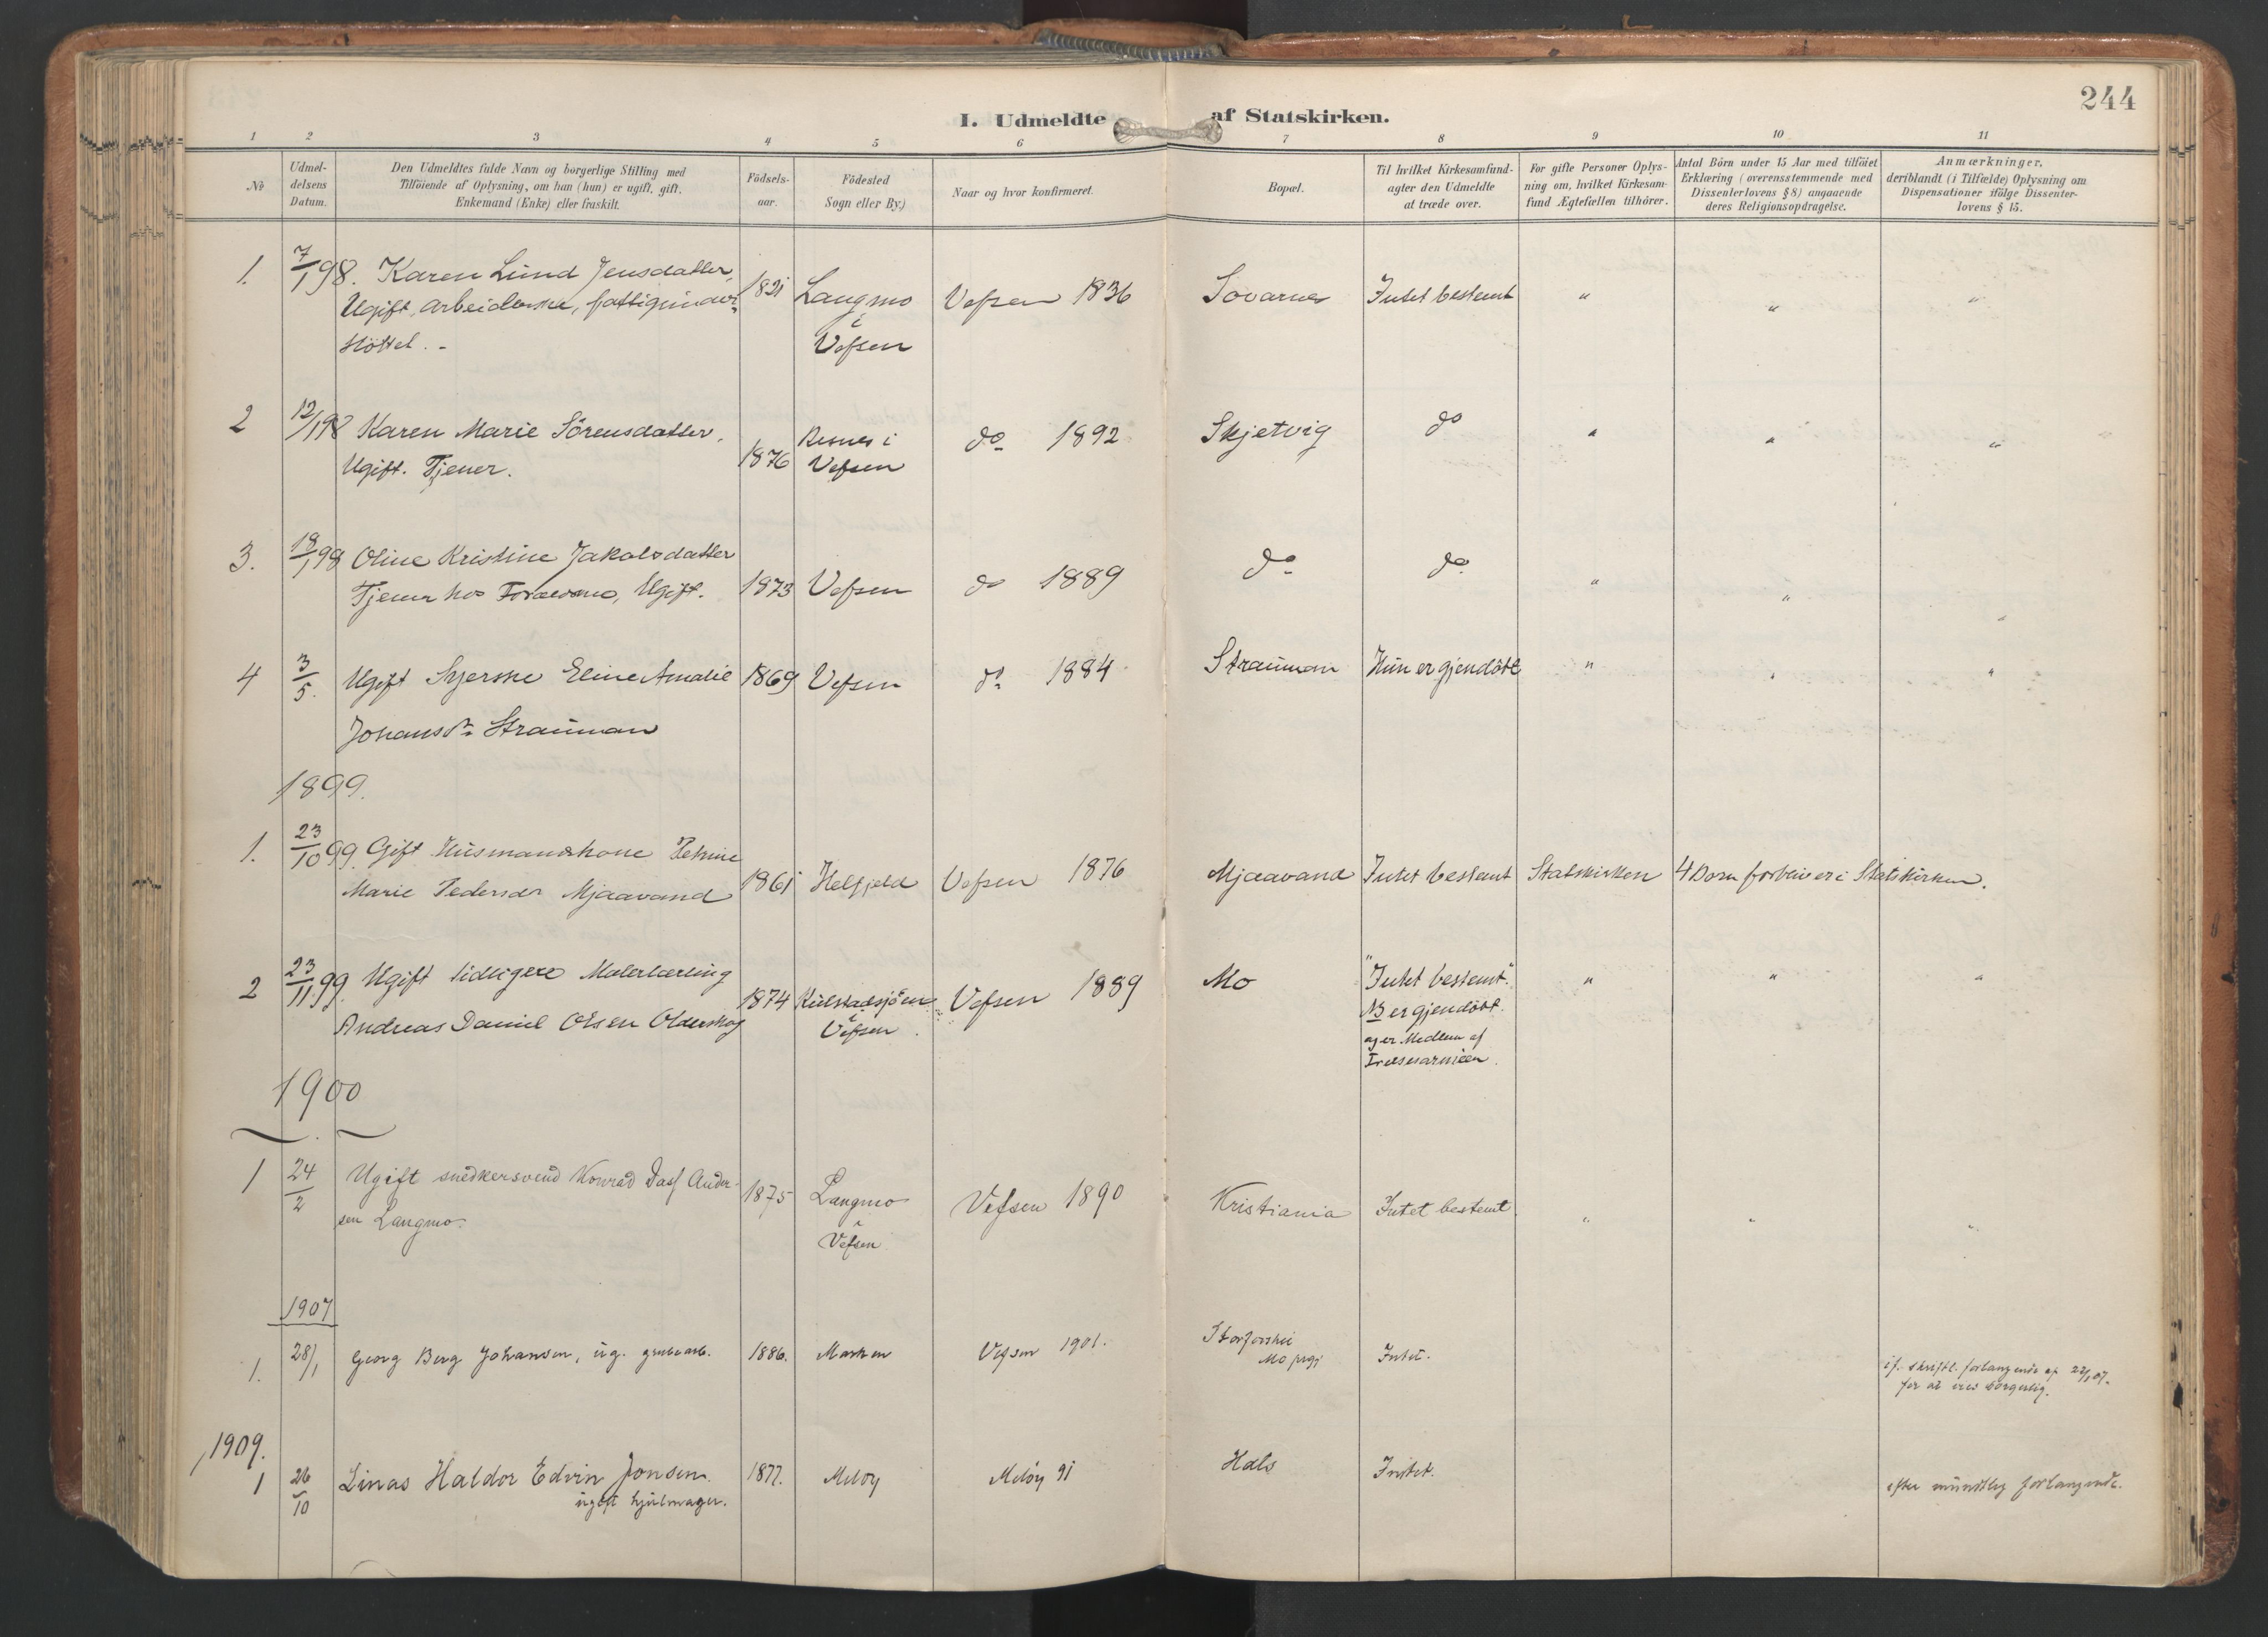 244
I. Udmeldte af Statskirken.
1 2 3 4 5 6 7 8 9 10 11
No
Udmel-
delsens
Datum.
Den Udmeldtes fulde Navn og borgerlige Stilling med
Tilföiende af Oplysning, om han (hun) er ugift, gift,
Enkemand (Enke) eller fraskilt.
Födsels-
aar.
Födested
Sogn eller By.)
Naar og hvor konfirmeret.
Bopæl.
Til hvilket Kirkesamfund-
agter den Udmeldte
at træde over.
For gifte Personer Oplys-
ning om, hvilket Kirkesam-
fund Ægtefællen tilhörer.
Antal Börn under 15 Aar med tilföiet
Erklæring (overensstemmende med
Dissenterlovens § 8) angaaende
deres Religionsopdragelse.
Anmærkninger,
deriblandt (i Tilfælde) Oplysning om
Dispensationer ifölge Dissenter-
lovens § 15.
1. 7/1 98. Karen Lund Jensdatter,
Ugift, arbeiderske,
1821
Langmo
i
Vefsen
Vefsen 1836
Sovarnes
Intet bestemt
" " "
2 12/1 98 Karen Marie Sörensdatter,
Ugift. Tjener.
1876
i
Vefsen
do 1892
Skjetvig
do
" " "
3. 18/1 98 Oline Kristine Jakobsdatter
Tjener hos Ugift.
1873
Vefsen
do 1889
do
do
" " "
4 3/5. Ugift Syerske Eline Amalie
Johansdr Strauman
1869
Vefsen
do 1884
Strauman
Hun er gjendöbt
" " "
1899.
1. 23/10 99. Gift Husmandskone Petrine
Marie Pedersdr Mjaavand
1861
Helfjeld
Vefsen 1876
Mjaavand
Intet bestemt
Statskirken
4 Börn forbliver i Statskirken.
2 23/11 99. Ugift tidligere Malerlærling
Andreas Daniel Olsen Olderskog
1874
Kulstadsjöen
i
Vefsen.
Vefsen 1889
Mo
"Intet bestemt."
NB er gjendöbt.
og er Medlem af
Frelsesarmeen.
" " "
1900
1 24/2 Ugift snedkersvend Konrad Ander-
sen Langmo.
1875
Langmo
i
Vefsen
Vefsen 1890
Kristiania
Intet bestemt.
" " "
1907
1. 28/1 Georg Berg Johansen, ug. grubearb.
1886.
Vefsen 1901.
Storforshei
Mo prgj
Intet.
if. skriftl. forlangende af 22/1 07.
for at vies borgerlig.
1909.
1 26/10 Linas Haldor Edvin Jonsen.
ugift hjulmager.
1877.
Melöy
Melöy 91
Hals
Intet.
efter mundtlig forlangende.